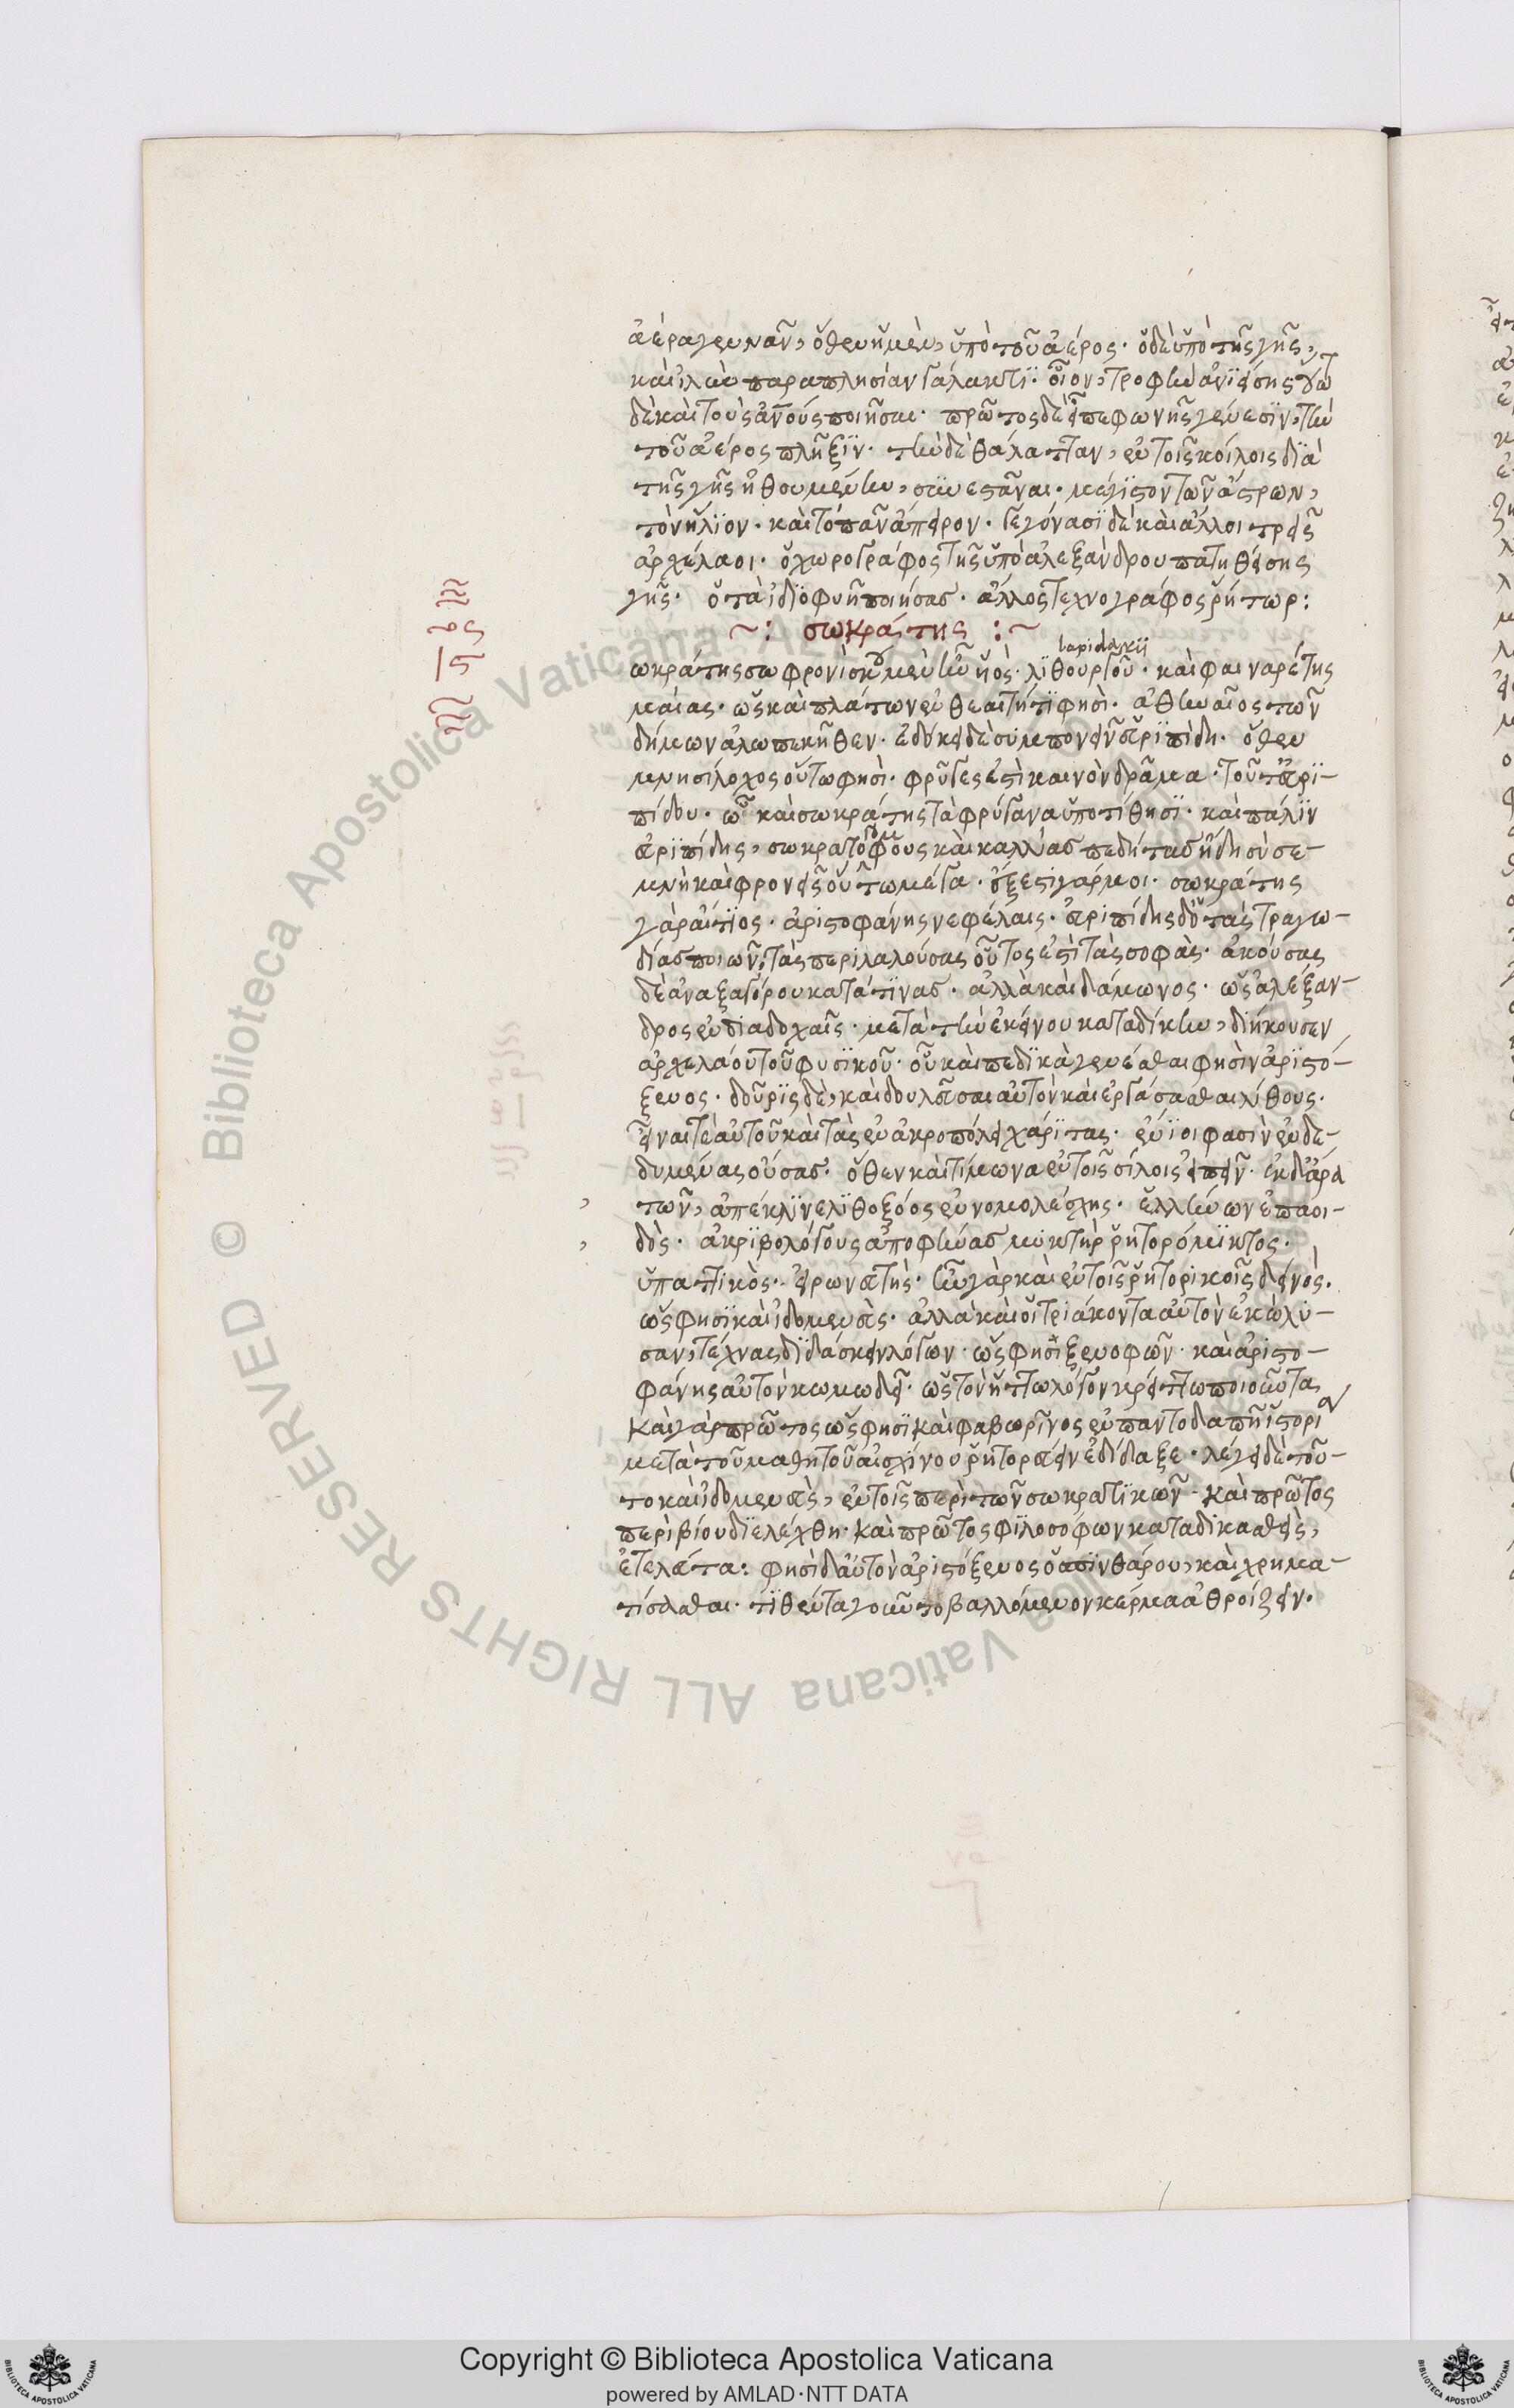 ἀέρα γεννᾶν, ὅθεν ἡ μὲν, ὑπὸ τοῦ ἀέρος· ὁ δὲ ὑπὸ τῆς γῆς,
καὶ ἰλὺν παραπλησίαν γάλακτι· οἷον, τροφὴν ἀνιείσης οὕτω
δὲ καὶ τοὺς ἀνους ποιῆσαι· πρῶτος δὲ εἶπε φωνῆς γένεσιν, τὴν
τοῦ ἀέρος πλῆξιν· τὴν δὲ θάλατταν, ἐν τοῖς κοίλοις διὰ
τῆς γῆς ἠθουμένην, συνεστάναι· μέγιστον τῶν ἄστρων,
τὸν ἥλιον· καὶ τὸ πᾶν ἄπειρον· γεγόνασι δὲ καὶ ἄλλοι τρεῖς
ἀρχέλαοι· ὁ χωρογράφος τῆς ὑπὸ ἀλεξάνδρου πατηθείσης
γῆς· ὁ τὰ ἰδιοφυῆ ποιήσας· ἄλλος τεχνογράφος ῥήτωρ:
~: σωκράτης :~
lapidarii
ωκράτης σωφρονίσκου μὲν ἦν ὑὸς· λιθουργοῦ· καὶ φαιναρέτης
μαίας· ὡς καὶ πλάτων ἐν θεαιτήτῳ φησὶ· ἀθηναῖος τῶν
δήμων ἀλωπεκῆθεν· ἐδόκει δὲ συμπονεῖν εὐριπίδῃ· ὅθεν
μνησίλοχος οὕτω φησὶ· φρύγες ἐστὶ καινὸν δρᾶμα· τοῦτ' εὐρι-
πίδου· ᾧ καὶ σωκράτης τὰ φρύγανα ὑποτίθησι· καὶ πάλιν
εὐριπίδης, σωκρατογόμφους καὶ καλλίας πεδήτας ἤδη σὺ σε-
μνὴ καὶ φρονεῖς οὕτω μέγα· ἔξεστι γάρ μοι· σωκράτης
γὰρ αἴτιος· ἀριστοφάνης νεφέλαις· εὐριπίδης δ' ὁ τὰς τραγω-
δίας ποιῶν, τὰς περιλαλούσας οὗτος ἐστὶ τὰς σοφὰς· ἀκούσας
δὲ ἀναξαγόρου κατά τινας· ἀλλὰ καὶ δάμωνος· ὡς ἀλέξαν-
δρος ἐν διαδοχαῖς· μετὰ τὴν ἐκείνου καταδίκην, διήκουσεν
ἀρχελάου τοῦ φυσικοῦ· οὗ καὶ πεδικὰ γενέσθαι φησὶν ἀριστό-
ξενος· δοῦρις δὲ, καὶ δουλεῦσαι αὐτὸν καὶ ἐργάσασθαι λίθους·
εἶναι τὲ αὐτοῦ καὶ τὰς ἐν ἀκροπόλει χάριτας· ἔνιοι φασὶν ἐνδε-
δυμένας οὔσας· ὅθεν καὶ τίμωνα ἐν τοῖς σίλοις εἰπεῖν· ἐκ δ' ἄρα
, τῶν, ἀπέκλινε λιθοξόος ἐννομολέσχης· ἑλλήνων ἐπαοι-
, δὸς· ἀκριβολόγους ἀποφήνας μυκτὴρ ῥητορόμικτος·
ὑπαττικὸς· εἰρωνευτής· ἦν γὰρ καὶ ἐν τοῖς ῥητορικοῖς δεινὸς·
ὥς φησι καὶ ἰδομενεὺς· ἀλλὰ καὶ οἱ τριάκοντα αὐτὸν ἐκώλυ-
σαν, τέχνας διδάσκειν λόγων· ὥς φησι ξενοφῶν· καὶ ἀριστο-
φάνης αὐτὸν κωμωδεῖ· ὡς τὸν ἥττω λόγον κρείττω ποιοῦντα
καὶ γὰρ πρῶτος ὥς φησι καὶ φαβωρῖνος ἐν παντοδαπῇ ἱστορίᾳ
μετὰ τοῦ μαθητοῦ αἰσχίνου ῥητορεύειν ἐδίδαξε· λέγει δὲ τοῦ-
το καὶ ἰδομενεὺς, ἐν τοῖς περὶ τῶν σωκρατικῶν· καὶ πρῶτος
περὶ βίου διελέχθη· καὶ πρῶτος φιλοσόφων καταδικασθεὶς,
ἐτελεύτα: φησὶ δ' αὐτὸν ἀριστόξενος ὁ σπινθάρου, καὶ χρημα-
τίσασθαι· τιθέντα γοῦν τὸ βαλλόμενον κέρμα ἀθροίζειν·